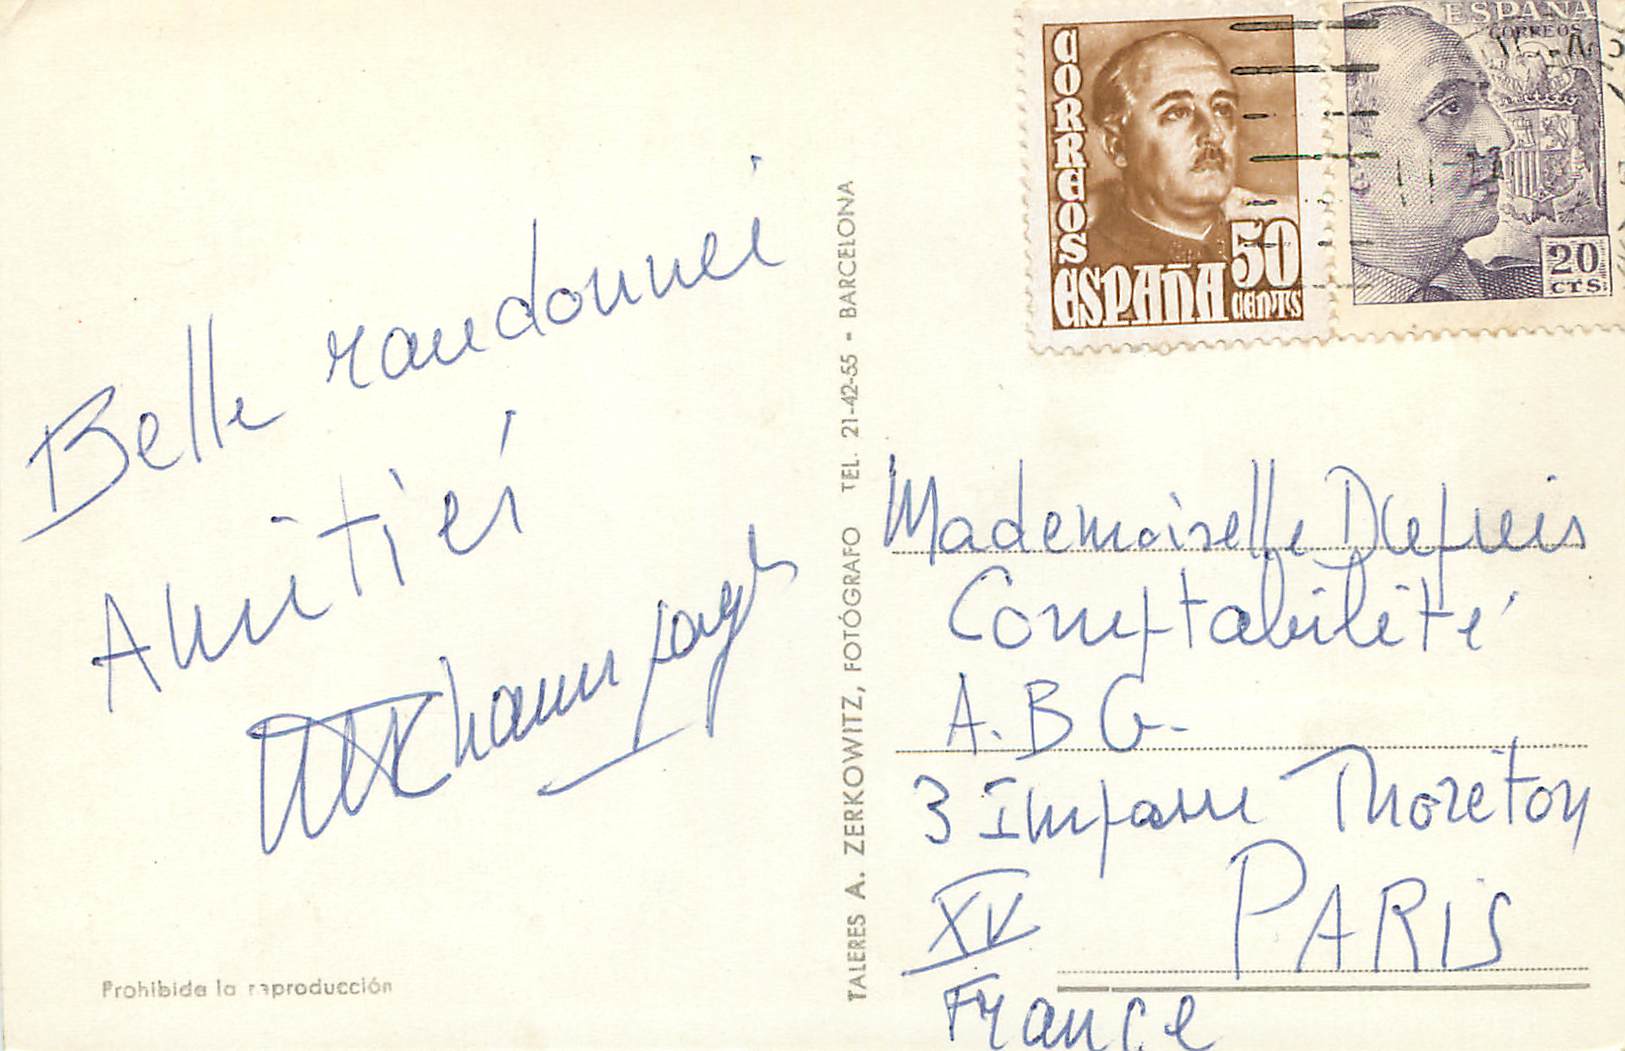 Belle randonnée
Amitiés
Prohibida la reproducción
TALERES A. ZERKOWITZ, FOTÓGRAFO TEL. 21-42-55 - BARCELONA
CORREOS
ESPAÑA
50
CENTS
ESPAÑA
CORREOS
20
CTS
Mademoiselle Dupuis
Comptabilité
A.B.G.
3 Impasse Thoréton
XV PARIS
France